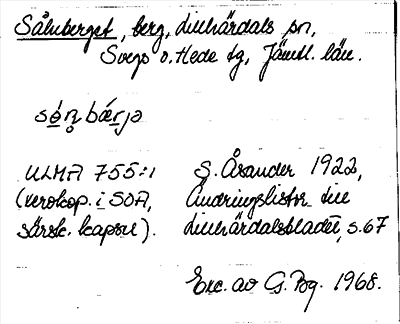 Sålnberget, berg, Lillhärdals sn,
Svegs o. Hede tg, Jämtl. län.
ULMA 755:1
(xerokop. i SOA,
särsk. kapsel).
S. Åsander 1922,
Ändringslistor till
Lillhärdalsbladet, s. 67
Exc. av G. Bg. 1968.